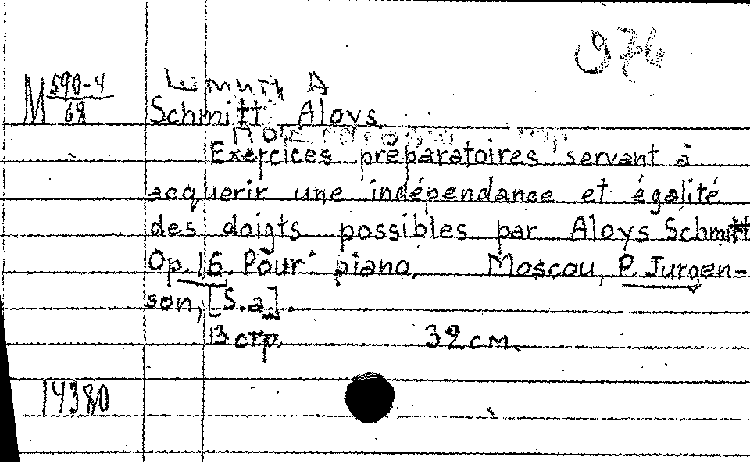 974
M 590-4/68
Шмитт А
Schmitt Aloys
Exercices préparatoires servant à
acquerir une indépendance et égalité
des doigts possibles par Aloys Schmitt
Op. 16. Pour piano. Moscou, P. Jurgen-
son, [S.a].
13 стр. 32 см.
14380